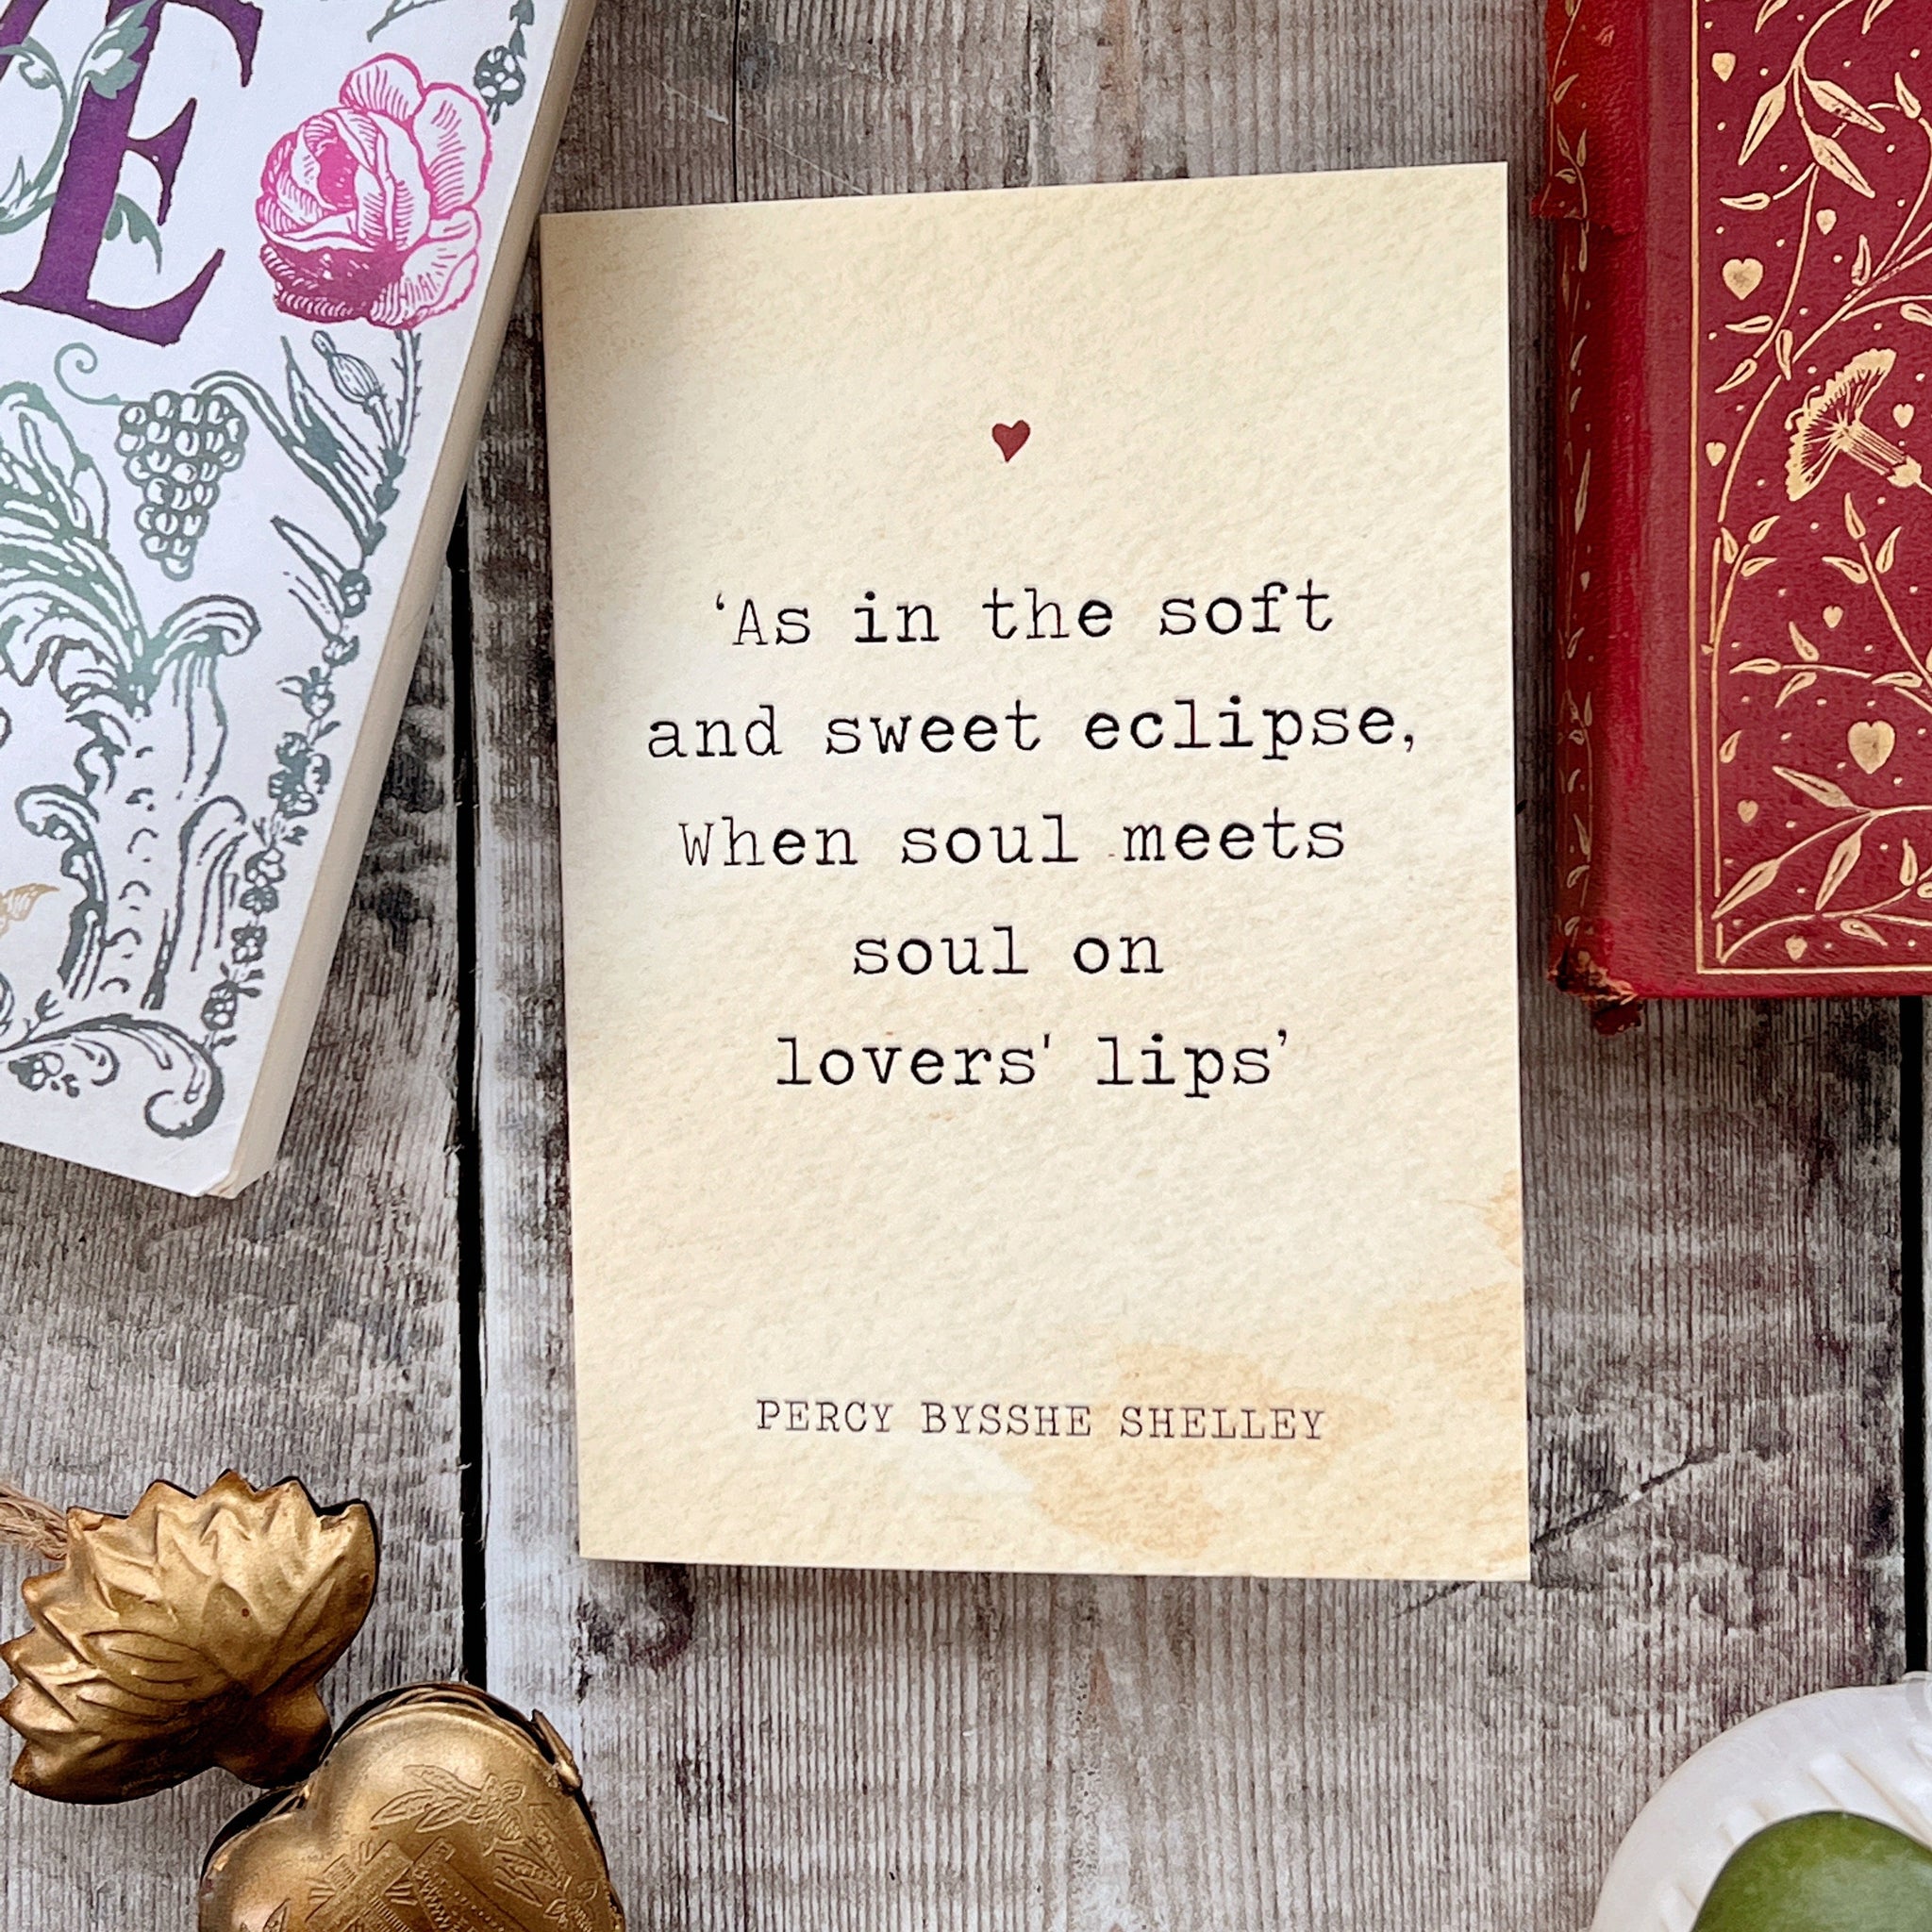 E
‘As in the soft
and sweet eclipse,
When soul meets
soul on
lovers' lips’
PERCY BYSSHE SHELLEY